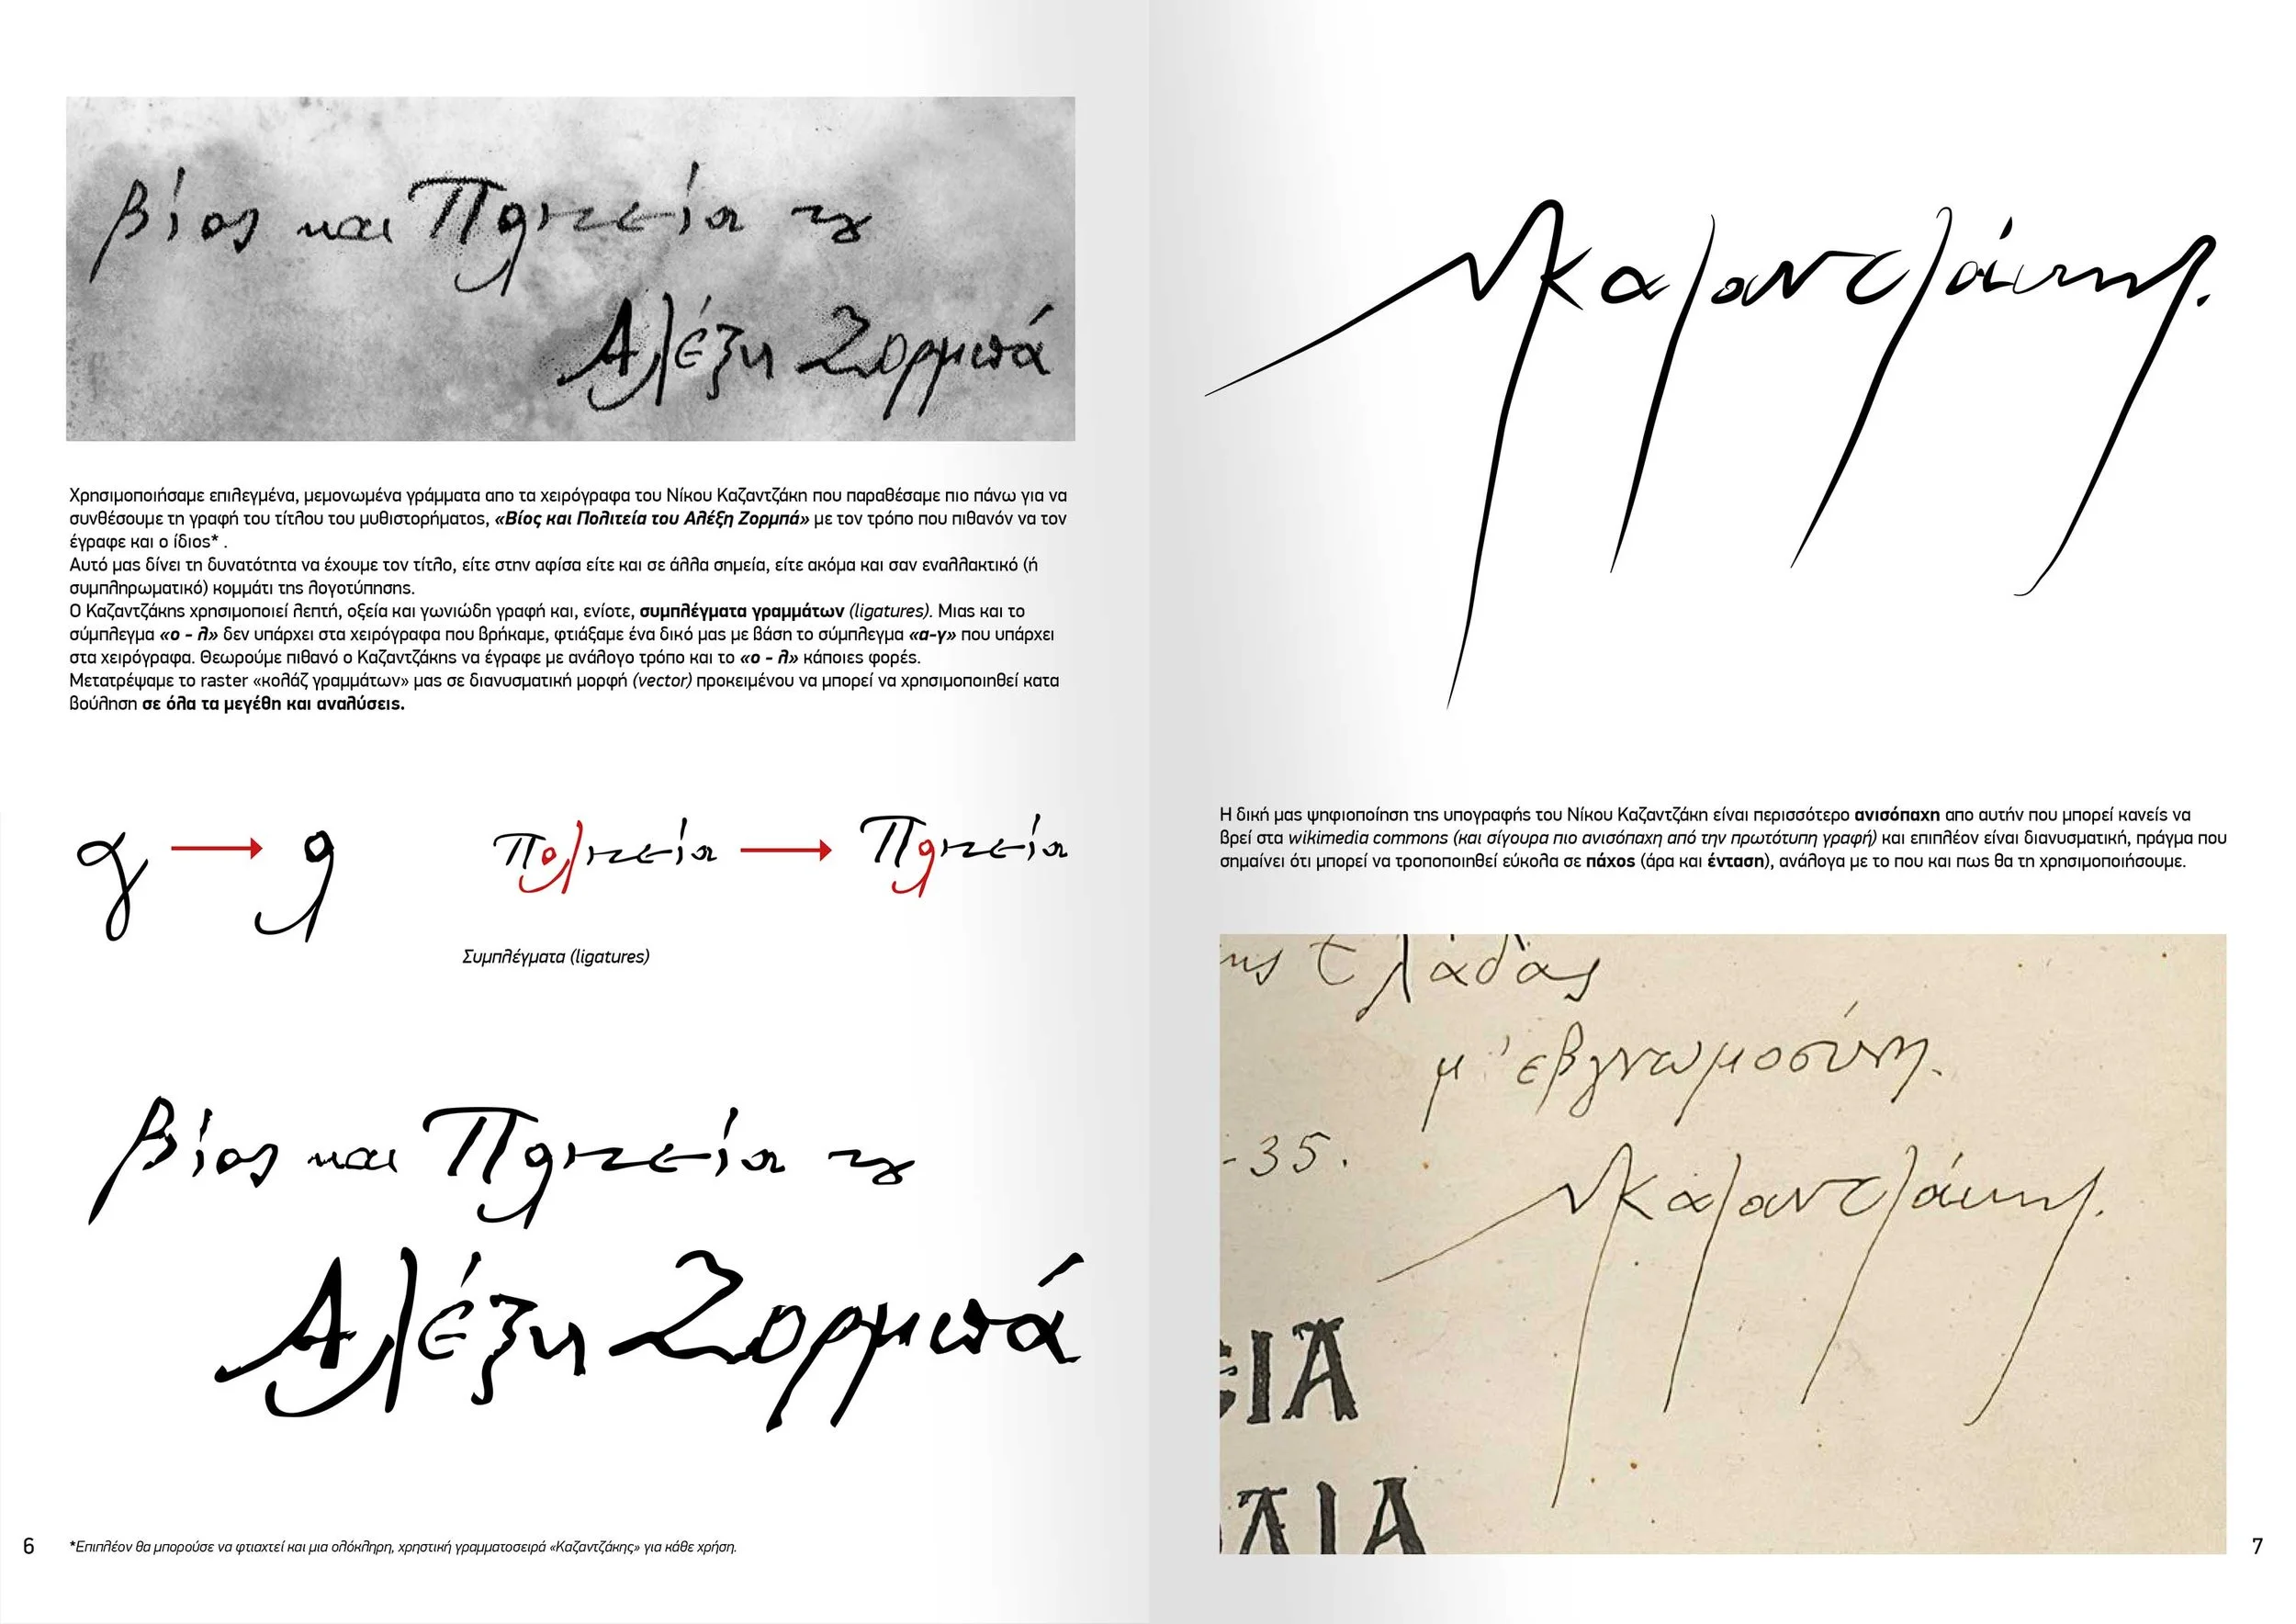 Βίος και Πολιτεία του
Αλέξη Ζορμπά
Χρησιμοποιήσαμε επιλεγμένα, μεμονωμένα γράμματα απο τα χειρόγραφα του Νίκου Καζαντζάκη που παραθέσαμε πιο πάνω για να
συνθέσουμε τη γραφή του τίτλου του μυθιστορήματος, «Βίος και Πολιτεία του Αλέξη Ζορμπά» με τον τρόπο που πιθανόν να τον
έγραφε και ο ίδιος* .
Αυτό μας δίνει τη δυνατότητα να έχουμε τον τίτλο, είτε στην αφίσα είτε και σε άλλα σημεία, είτε ακόμα και σαν εναλλακτικό (ή
συμπληρωματικό) κομμάτι της λογοτύπησης.
Ο Καζαντζάκης χρησιμοποιεί λεπτή, οξεία και γωνιώδη γραφή και, ενίοτε, συμπλέγματα γραμμάτων (ligatures). Μιας και το
σύμπλεγμα «ο - λ» δεν υπάρχει στα χειρόγραφα που βρήκαμε, φτιάξαμε ένα δικό μας με βάση το σύμπλεγμα «α-γ» που υπάρχει
στα χειρόγραφα. Θεωρούμε πιθανό ο Καζαντζάκης να έγραφε με ανάλογο τρόπο και το «ο - λ» κάποιες φορές.
Μετατρέψαμε το raster «κολάζ γραμμάτων» μας σε διανυσματική μορφή (vector) προκειμένου να μπορεί να χρησιμοποιηθεί κατα
βούληση σε όλα τα μεγέθη και αναλύσεις.
Πολιτεία Πολιτεία
Συμπλέγματα (ligatures)
Βίος και Πολιτεία του
Αλέξη Ζορμπά
6
*Επιπλέον θα μπορούσε να φτιαχτεί και μια ολόκληρη, χρηστική γραμματοσειρά «Καζαντζάκης» για κάθε χρήση.
Ν Καζαντζάκης.
Η δική μας ψηφιοποίηση της υπογραφής του Νίκου Καζαντζάκη είναι περισσότερο ανισόπαχη απο αυτήν που μπορεί κανείς να
βρεί στα wikimedia commons (και σίγουρα πιο ανισόπαχη από την πρωτότυπη γραφή) και επιπλέον είναι διανυσματική, πράγμα που
σημαίνει ότι μπορεί να τροποποιηθεί εύκολα σε πάχος (άρα και ένταση), ανάλογα με το που και πως θα τη χρησιμοποιήσουμε.
ης Ελλάδας
μ' εβγνωμοσύνη.
-35.
Ν Καζαντζάκης.
ΕΙΑ
ΛΙΑ
7